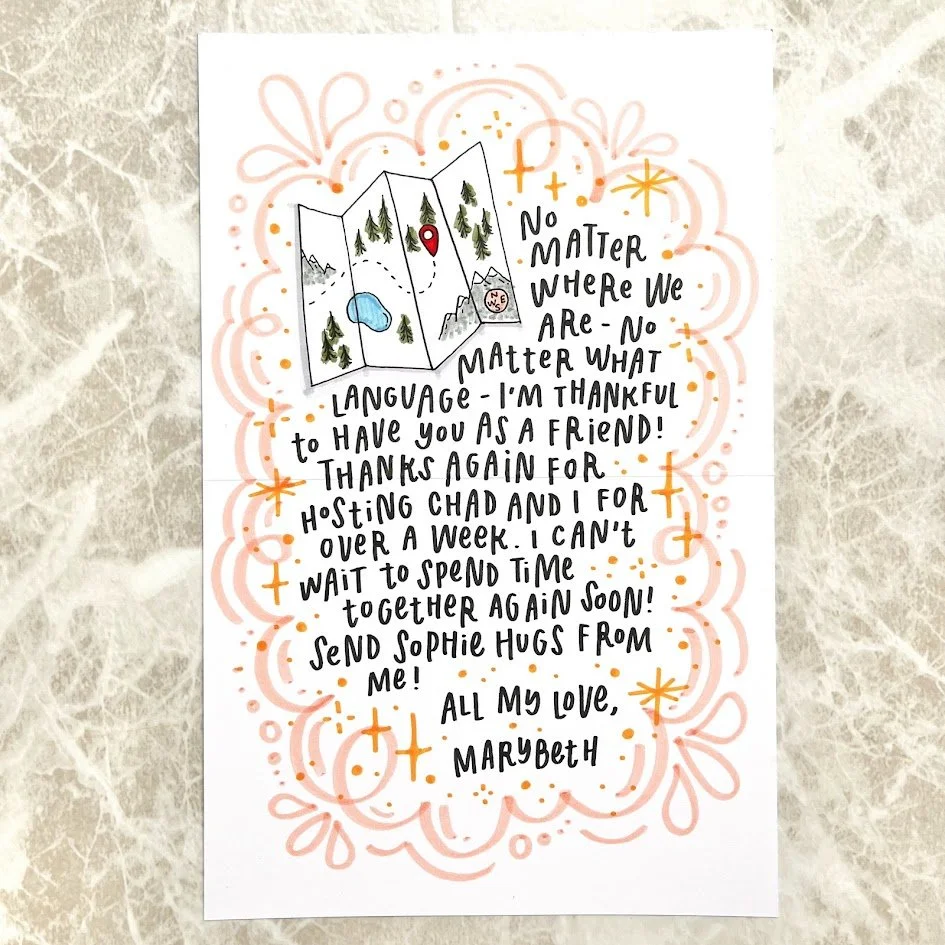 NO
MATTER
WHERE WE
ARE - NO
MATTER WHAT
LANGUAGE - I'M THANKFUL
to HAVE YOU AS A FRIEND!
THANKS AGAIN FOR
HOSTING CHAD AND I FOR
OVER A WEEK. I CAN'T
WAIT to SPEND TIME
toGETHER AGAIN SOON!
SEND SOPHIE HUGS FROM
ME!
ALL MY LOVE,
MARYBETH
N
W E
S